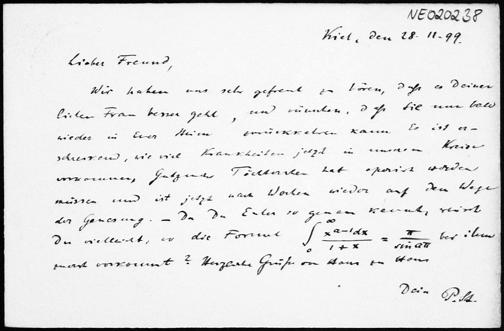 NE020238
Kiel, den 28.11.99.
Lieber Freund,
Wir haben uns sehr gefreut zu hören, daß es Deiner
lieben Frau besser geht, und wünschen, daß sie nun bald
wieder in Euer Heim zurückkehren kann. Es ist er-
schreckend, wie viel Krankheiten jetzt in unserem Kreise
vorkommen, Töchterchen hat operirt werden
müssen und ist jetzt nach Wochen wieder auf dem Wege
der Genesung. — Da Du Euler so genau kennst, weißt
Du vielleicht, wo die Formel ∫₀^∞ x^(a-1)dx / (1+x) = π / sin aπ bei ihm
zuerst vorkommt? Herzliche Grüße von Haus zu Haus
Dein P. St.